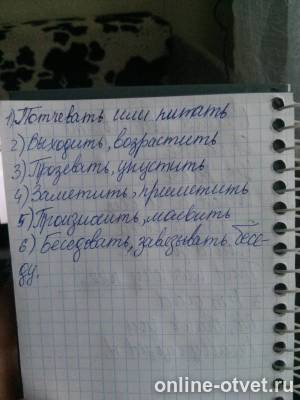 1) Потчевать или питать
2) Выходить, возрастить
3) Прозевать, упустить
4) Заметить, приметить
5) Произносить, молвить
6) Беседовать, завязывать бесе-
ду.
online-otvet.ru